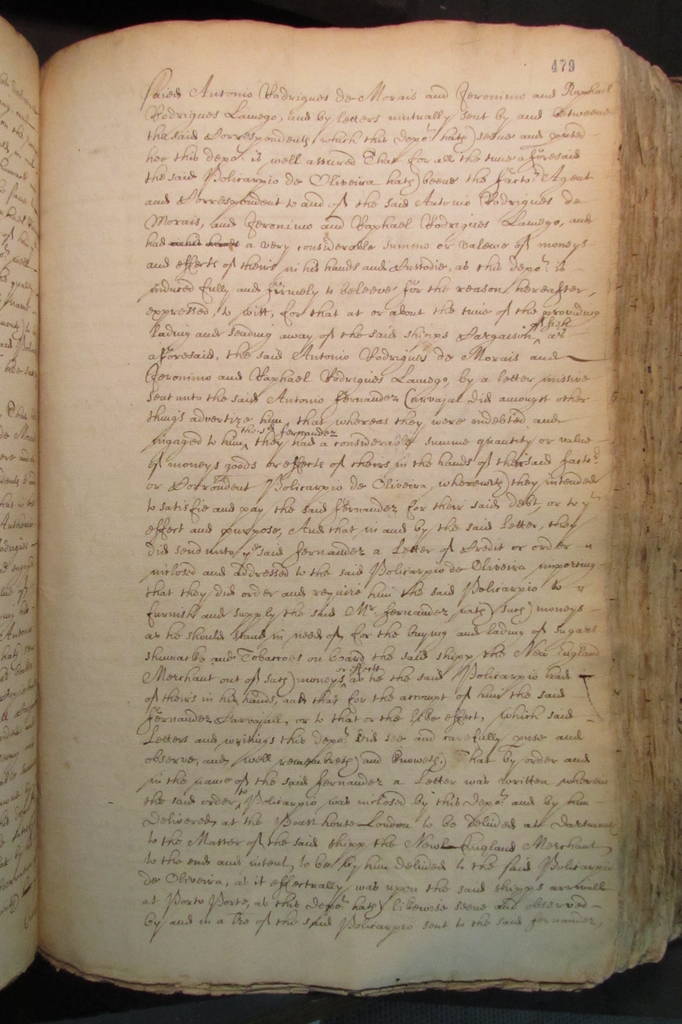 479
saied Antonio Rodrigues de Morais and Jeronimo and Raphael
Rodrigues Lamego, and by letters mutually sent by and betweene
the said Correspondents, which this depot. hath seene and perused
hee this depot. is well assured That for all the time aforesaid
the said Policarpio de Oliveira hath beene the factor Agent
and Correspondent to and of the said Antonio Rodrigues de
Morais, and Jeronimo and Raphael Rodrigues Lamego, and
had a very considerable summe or valewe of moneys
and effects of theirs in his hands and Custodie, as this depot. is
induced fully and firmely to beleeve for the reason hereafter
expressed, to witt, for that at or about the time of the providing
lading and sending away of the said shipps as
aforesaid, the said Antonio Rodrigues de Morais and
Jeronimo and Raphael Rodrigues Lamego, by a letter missive
sent unto the said Antonio Fernandez Carvajal did amongst other
things advertize him, that whereas they were indebted and
ingaged to him the sd fernandez they had a considerable summe quantity or value
of moneys goods or effects of theirs in the hands of their said factor
or Corrondent Policarpio de Oliveira, wherewith they intended
to satisfie and pay the said Fernandez for their said debt, or to ye
effect and purpose, And that in and by the said Letter, they
did send unto ye said Fernandez a Letter of Credit or order
inclosed and addressed to the said Policarpio de Oliveira importing
that they did order and require him the said Policarpio to
furnish and supply the said Mr. Fernandez with such moneys
as he should stand in need of for the buying and lading of sugars
shumacke and Tobaccoes on board the said shipp the New England
Merchant out of such moneys or effects as he the said Policarpio had
of theirs in his hands, and that for the account of him the said
Fernandez Carvajall, or to that or the like effect, which said
Letters and writings this depot. did see and carefully peruse and
observe, and well remembreth and knoweth, That by order and
in the name of the said Fernandez a Letter was written wherein
the said order to Policarpio was inclosed by this depot. and by him
delivered at the Post house London to be delivered at Dartmouth
to the Master of the said shipp the New England Merchant
to the end and intent to be by him delivered to the said Policarpio
de Oliveira, as it effectually was upon the said shipps arrivall
at Porto Porte, as this depot. hath likewise seene and observed
by and in a Lre of the said Policarpio sent to the said Fernandez,